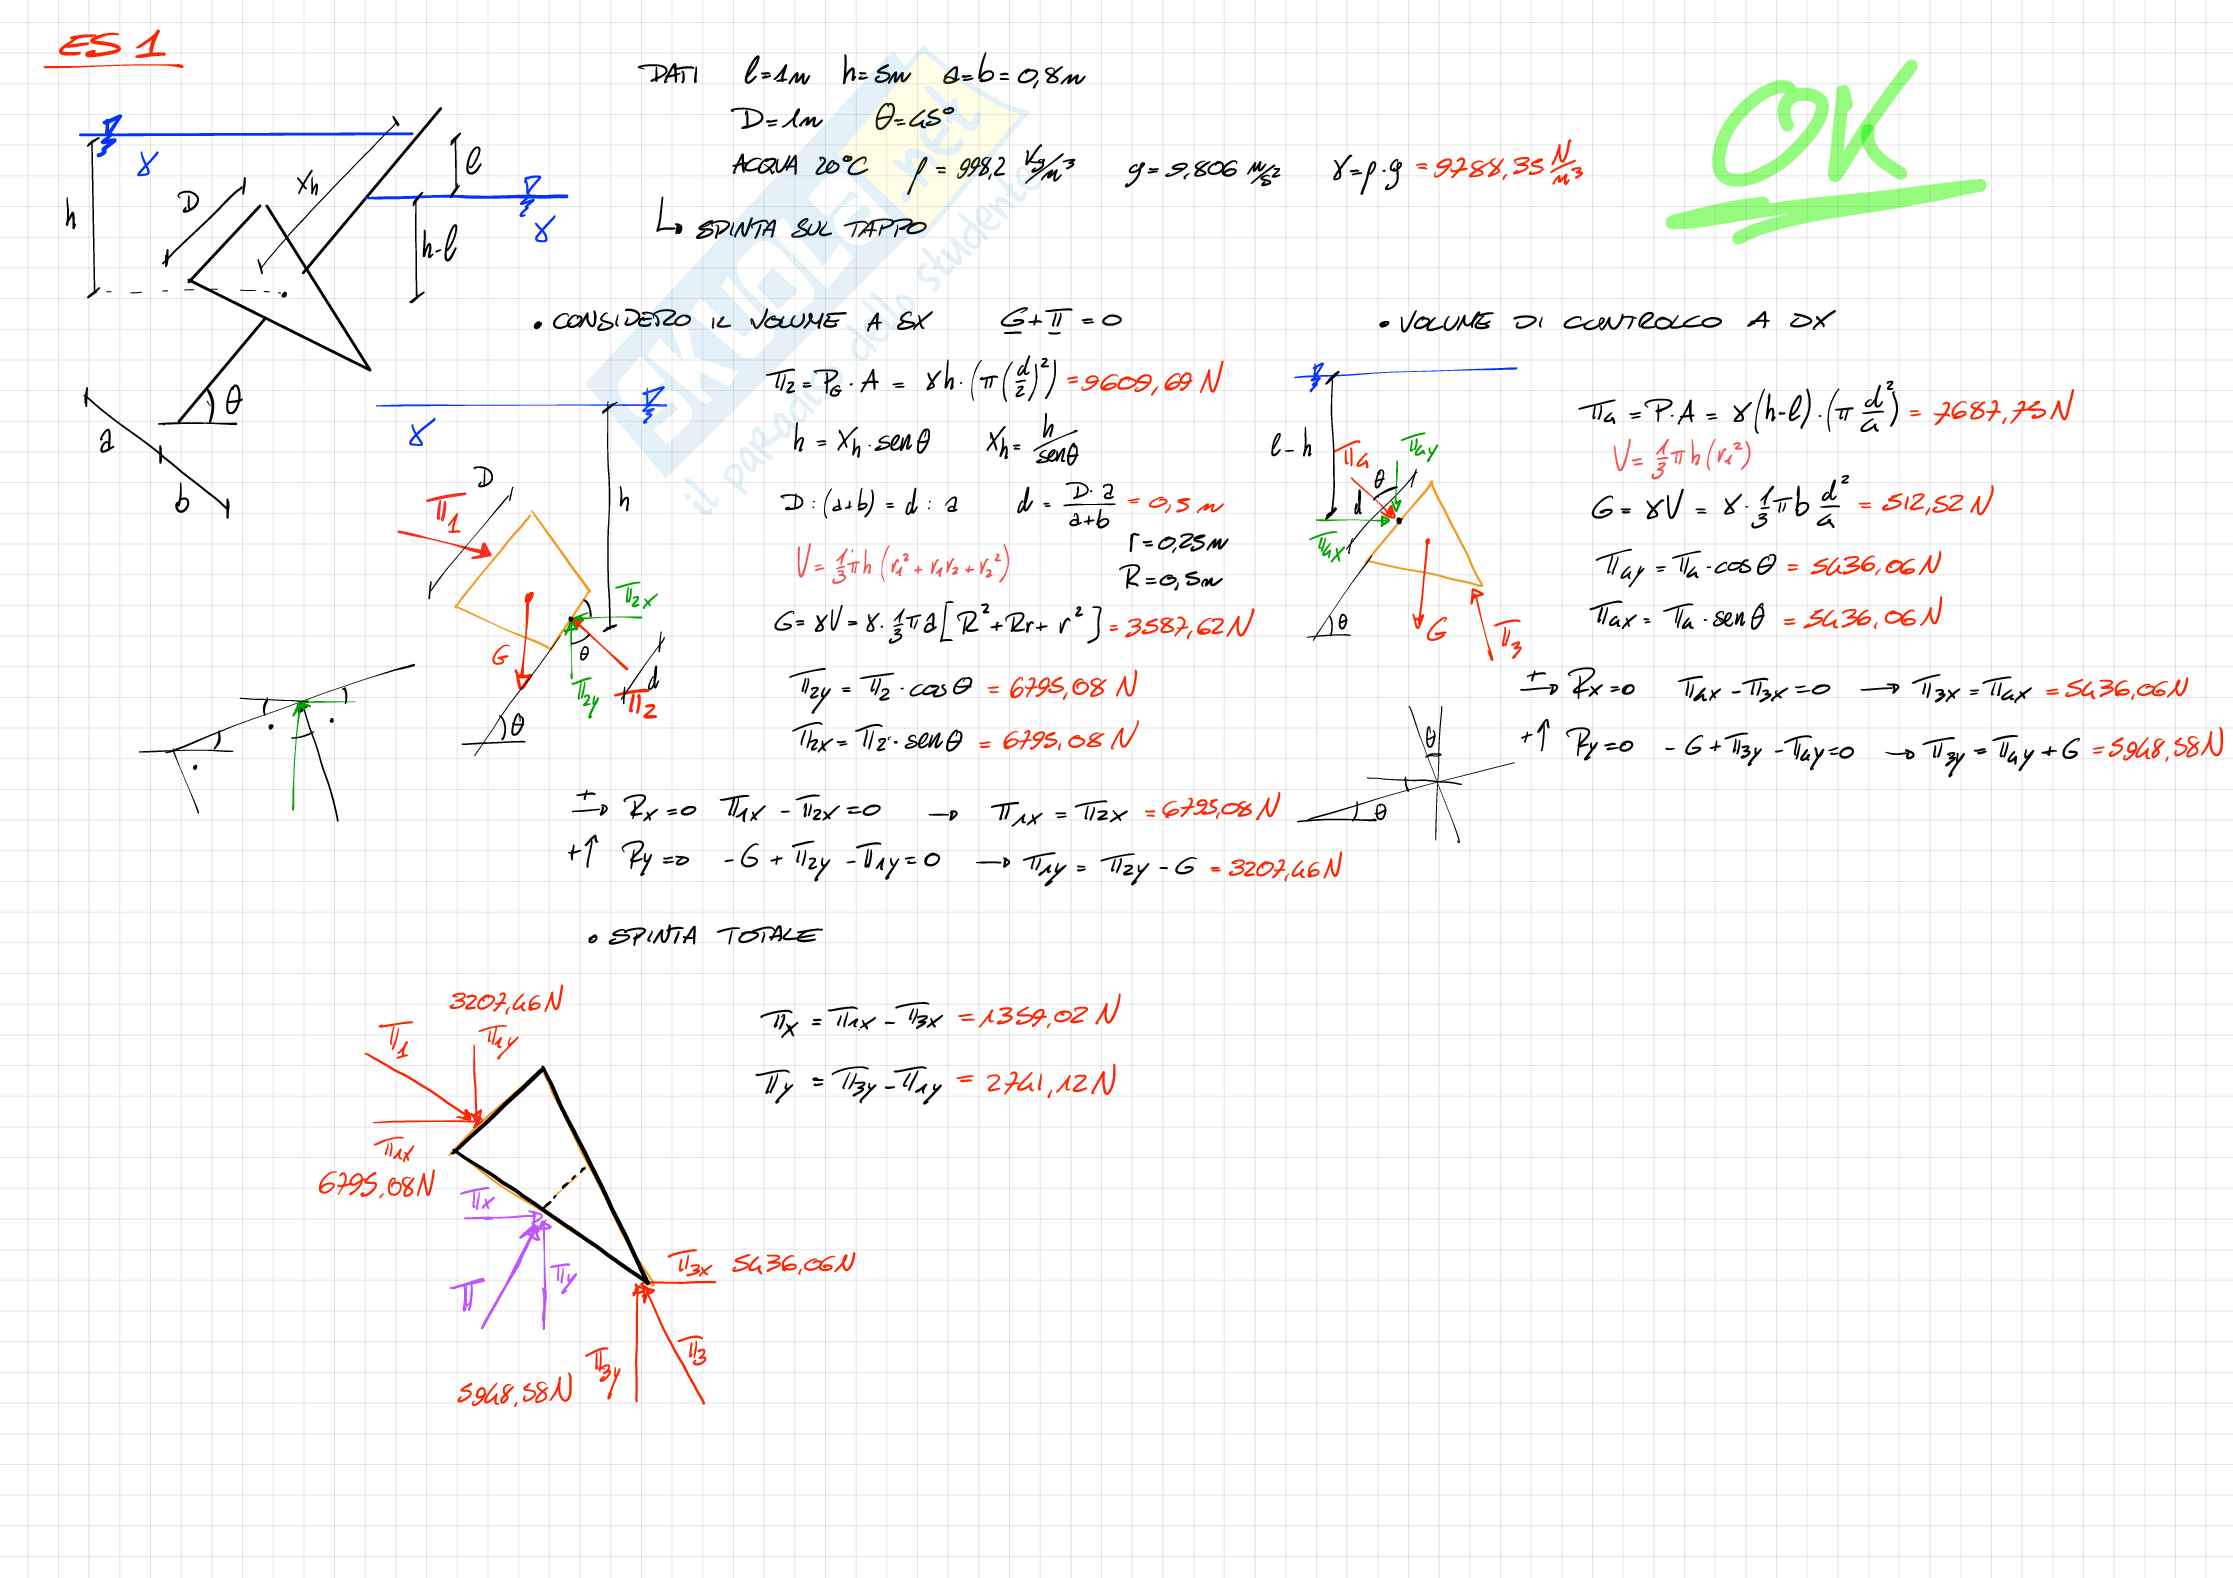 ES 1
DATI l=1m h=5m a=b=0,8m
D=1m θ=45°
ACQUA 20°C ρ=998,2 Kg/m³ g=9,806 m/s² γ=ρ·g =9788,35 N/m³
↳ SPINTA SUL TAPPO
OK
γ
h
D
xh
l
γ
h-l
θ
a
b
• CONSIDERO IL VOLUME A SX G+Π=0
Π2=PG·A = γh·(π(d/2)²) =9609,69 N
h = xh·senθ xh = h/senθ
D:(a+b) = d:a d = D·a/(a+b) = 0,5 m
r=0,25m
R=0,5m
V=1/3πh(r1²+r1r2+r2²)
G=γV=γ·1/3πa[R²+Rr+r²]=3587,62N
Π2y=Π2·cosθ = 6795,08 N
Π2x=Π2·senθ = 6795,08 N
γ
D
Π1
h
Π2x
G
θ
Π2y
d
Π2
θ
+→ Rx=0 Π1x-Π2x=0 → Π1x=Π2x =6795,08N
+↑ Ry=0 -G+Π2y-Π1y=0 → Π1y=Π2y-G =3207,46N
• VOLUME DI CONTROLLO A DX
l-h
Π4
Π4y
θ
d
Π4x
G
Π3
θ
Π4=P·A=γ(h-l)·(π d²/4) = 7687,75N
V=1/3πh(r1²)
G=γV=γ·1/3πb d²/4 = 512,52N
Π4y=Π4·cosθ = 5436,06N
Π4x=Π4·senθ = 5436,06N
+→ Rx=0 Π4x-Π3x=0 → Π3x=Π4x =5436,06N
+↑ Ry=0 -G+Π3y-Π4y=0 → Π3y=Π4y+G =5948,58N
θ
θ
• SPINTA TOTALE
Πx=Π1x-Π3x =1359,02 N
Πy=Π3y-Π1y = 2741,12N
3207,46N
Π1
Π1y
Π1x
6795,08N
Πx
Π
Πy
Π3x 5436,06N
Π3y
Π3
5948,58N
SKUOLA.net
il paradiso dello studente